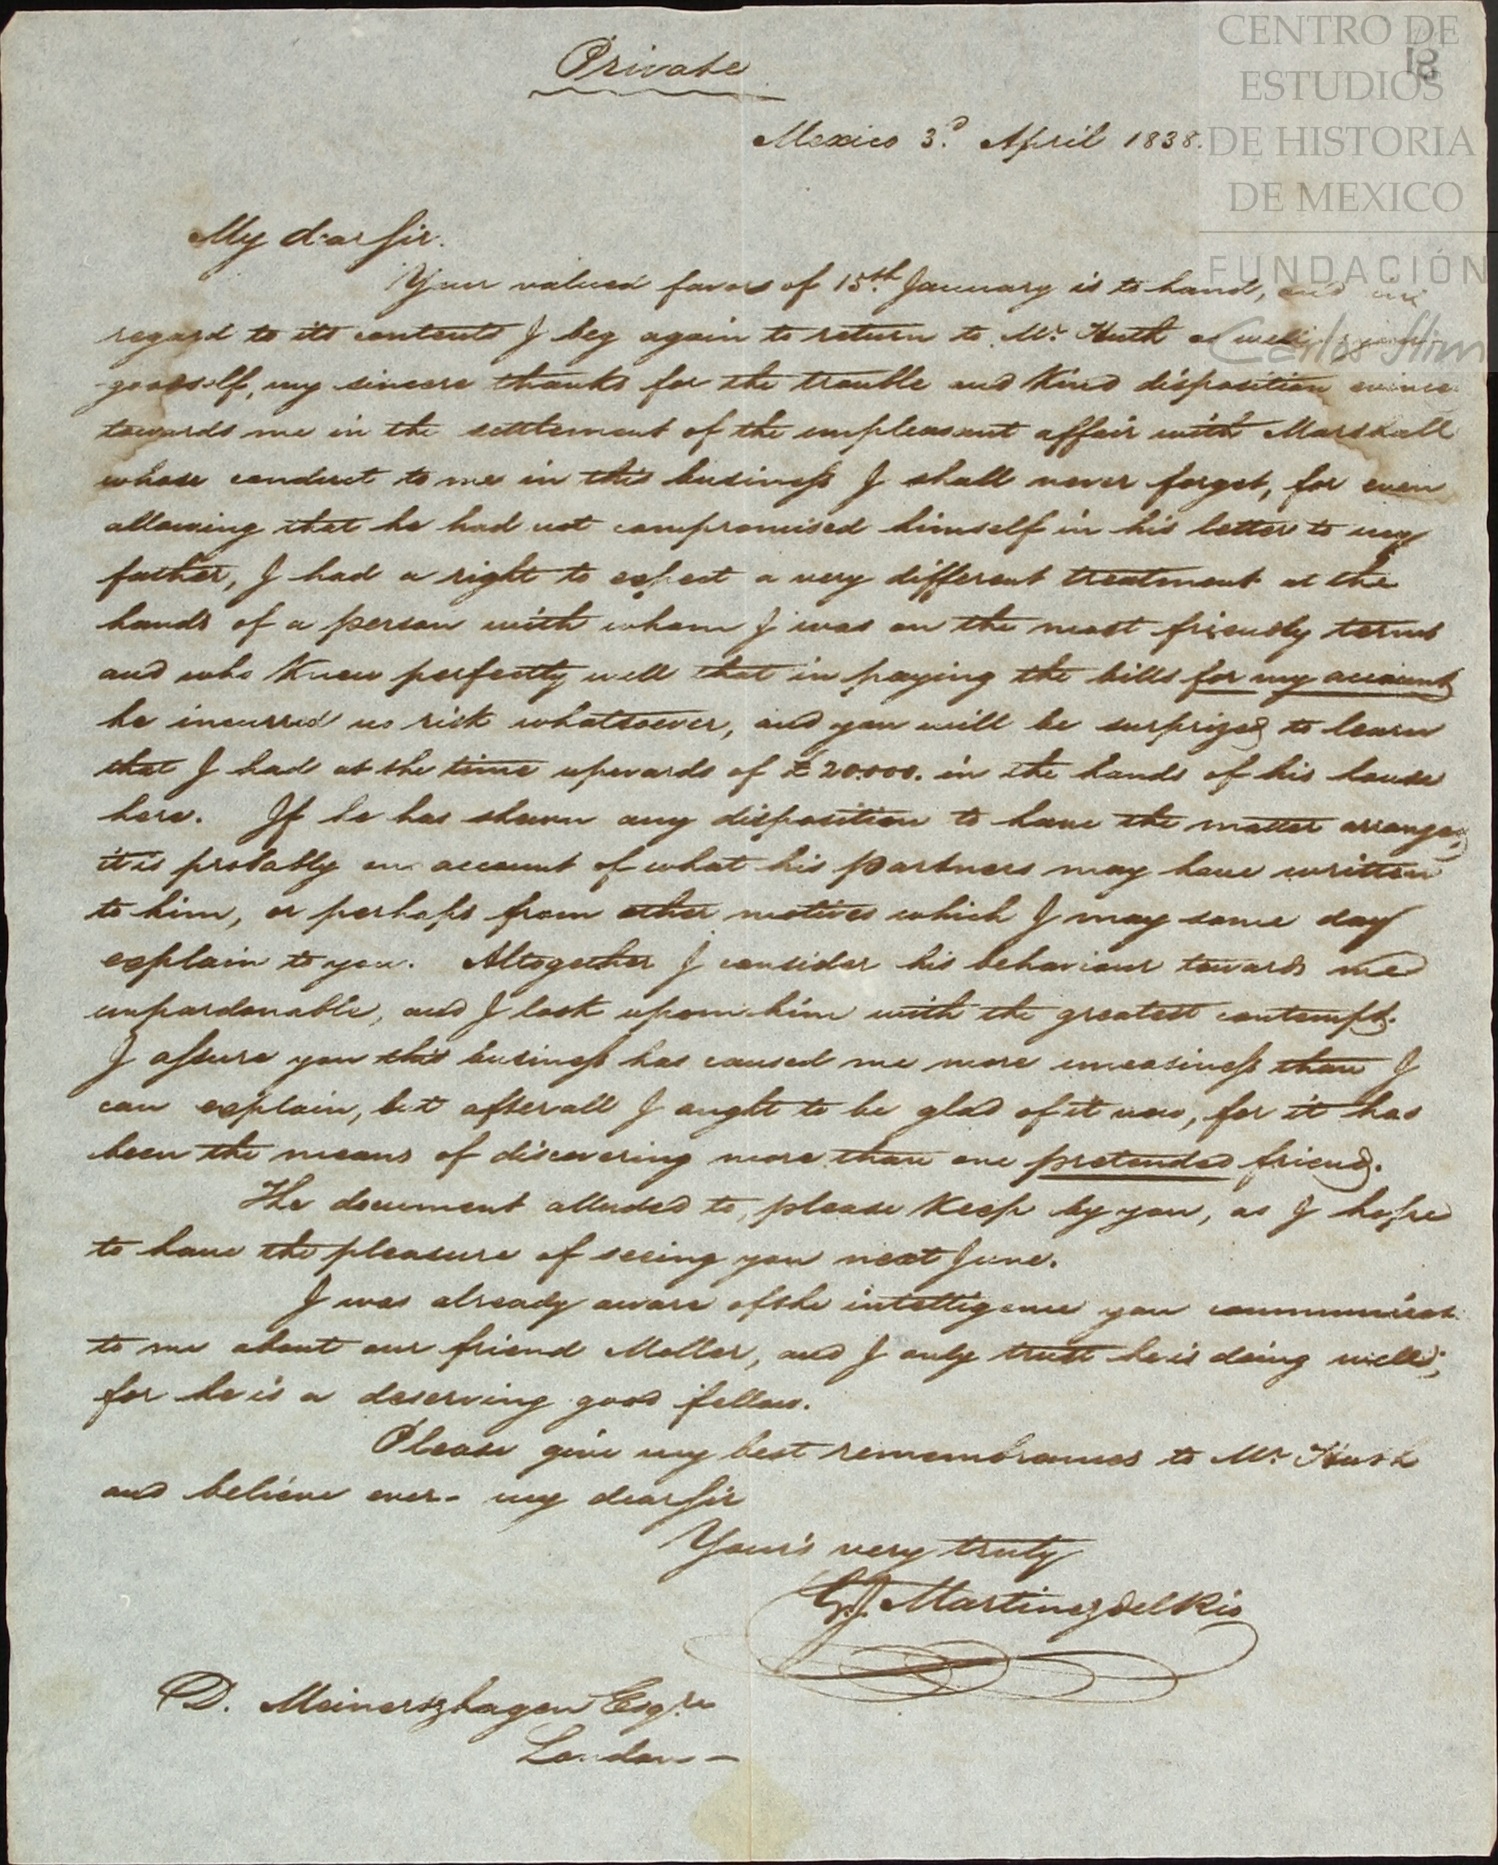 CENTRO DE
ESTUDIOS
DE HISTORIA
DE MEXICO
FUNDACIÓN
Carlos Slim
13
Private
Mexico 3.d April 1838.
My dear Sir.
Your valued favor of 15.th January is to hand, and in
regard to its contents I beg again to return to Mr. Huth as well as your
goodself, my sincere thanks for the trouble and kind disposition evince
towards me in the settlement of the unpleasant affair with Marshall
whose conduct to me in this business I shall never forget, for even
allowing that he had not compromised himself in his letter to my
father, I had a right to expect a very different treatment at the
hands of a person with whom I was on the most friendly terms
and who knew perfectly well that in paying the bills for my account
he incurred no risk whatsoever, and you will be surprized to learn
that I had at the time upwards of £20.000. in the hands of his house
here. If he has shewn any disposition to have the matter arranged,
it is probably on account of what his partners may have written
to him, or perhaps from other motives which I may some day
explain to you. Altogether I consider his behaviour towards me
unpardonable, and I look upon him with the greatest contempt.
I assure you this business has caused me more uneasiness than I
can explain, but after all I ought to be glad of it now, for it has
been the means of discovering more than one pretended friend.
The document alluded to, please keep by you, as I hope
to have the pleasure of seeing you next June.
I was already aware of the intelligence you communicate
to me about our friend Moller, and I only trust he is doing well,
for he is a deserving good fellow.
Please give my best remembrances to Mr. Huth
and believe ever - my dear Sir
Your's very truly
G. J. Martinez del Rio
D. Meinertzhagen Esqre
London -